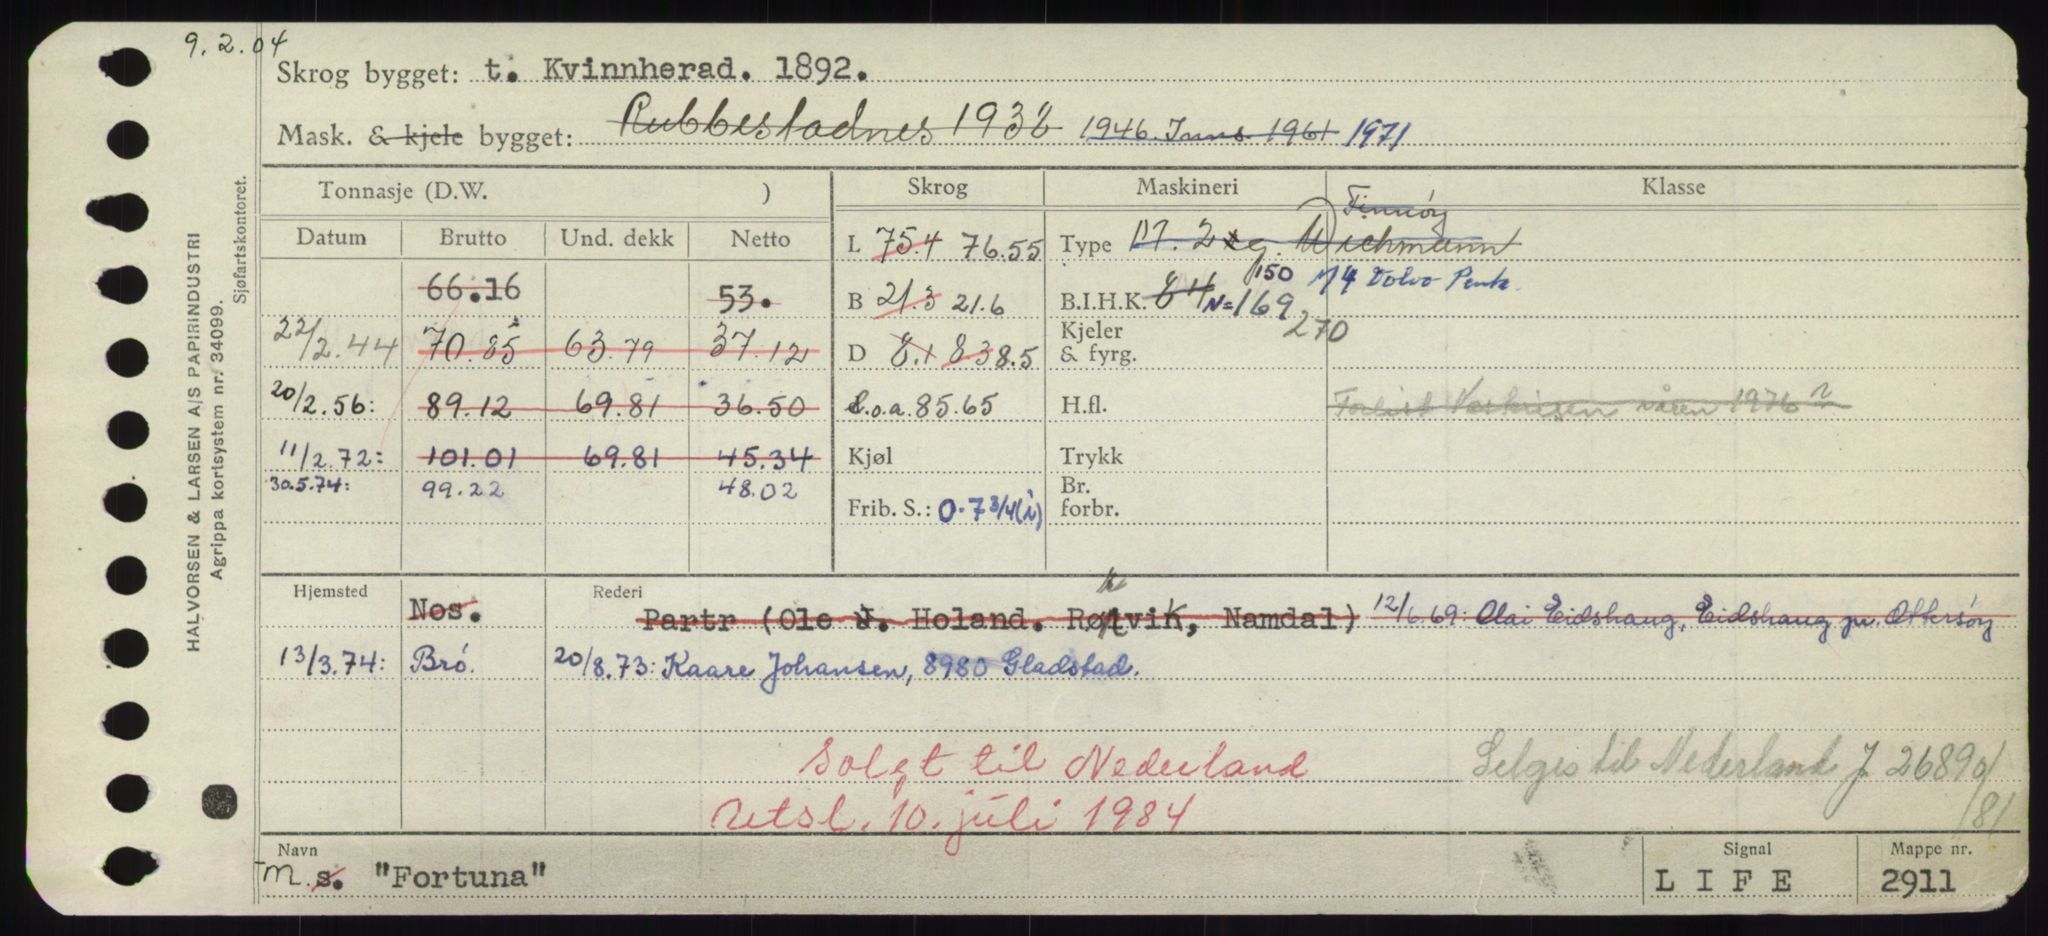 9. 2. 04
Skrog bygget: t. Kvinnherad. 1892.
Mask. & kjele bygget: Rubbestadnes 1938 1946. 1961 1971
HALVORSEN & LARSEN A/S PAPIRINDUSTRI
Agrippa kortsystem nr. 34099.
Sjøfartskontoret.
Tonnasje (D.W. ) Skrog Maskineri Klasse
Datum Brutto Und. dekk Netto
66.16 53.
22/2.44 70.85 63.79 37.12
20/2.56: 89.12 69.81 36.50
11/2.72: 101.01 69.81 45.34
30.5.74: 99.22 48.02
L 75.4 76.55
B 21.3 21.6
D 8.1 8.3 8.5
L.o.a. 85.65
Kjøl
Frib. S.: 0.7 3/4 (i)
Finnøy
Type M. 2 sg. Wichmann
150 M 4 Volvo Penta.
B.I.H.K. 84 N=169
270
Kjeler & fyrg.
H.fl. Forlist våren 1976
Trykk
Br. forbr.
Hjemsted Rederi
Nos. Partr (Ole J. Holand. Rørvik, Namdal) 12/6.69: Olai Eidshaug, Eidshaug pr. Ottersøy
13/3.74: Brø. 20/8.73: Kaare Johansen, 8980 Gladstad.
Solgt til Nederland Selges til Nederland J. 2689 01/81
Uetsl. 10. juli 1984
Navn Signal Mappe nr.
m. s. "Fortuna" L I F E 2911